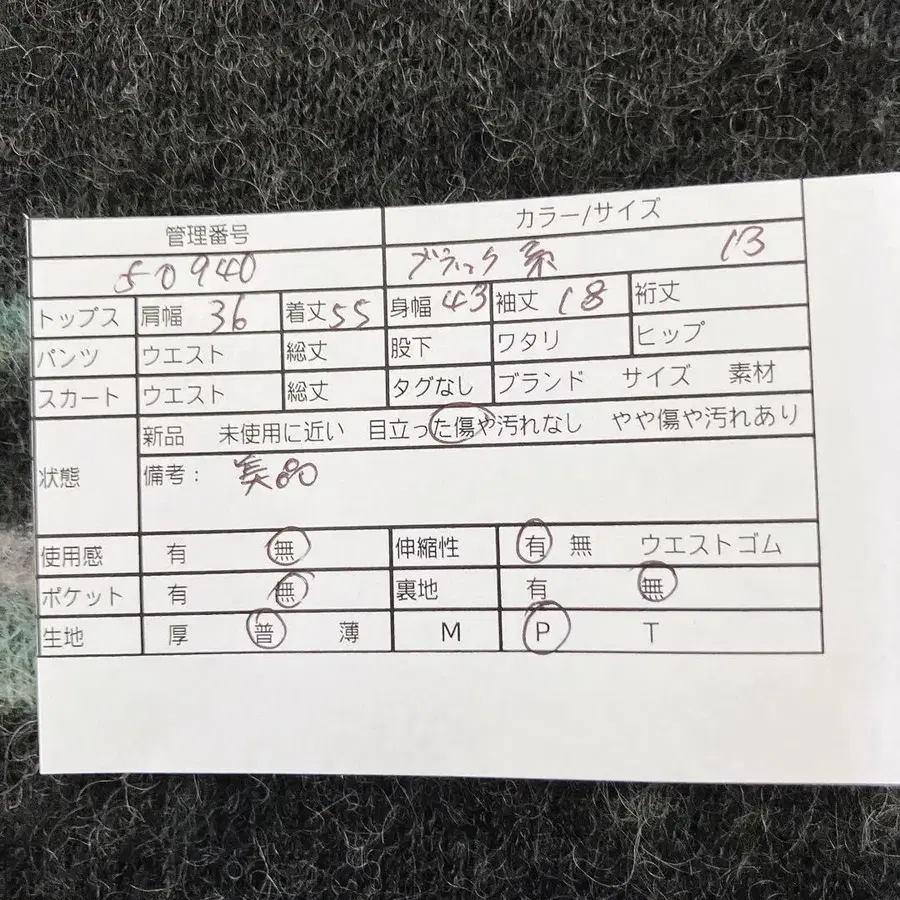 管理番号 カラー/サイズ
50940 ブラック系 13
トップス 肩幅 36 着丈 55 身幅 43 袖丈 18 裄丈
パンツ ウエスト 総丈 股下 ワタリ ヒップ
スカート ウエスト 総丈 タグなし ブランド サイズ 素材
状態 新品 未使用に近い 目立った傷や汚れなし やや傷や汚れあり
備考: 美品
使用感 有 無 伸縮性 有 無 ウエストゴム
ポケット 有 無 裏地 有 無
生地 厚 普 薄 M P T